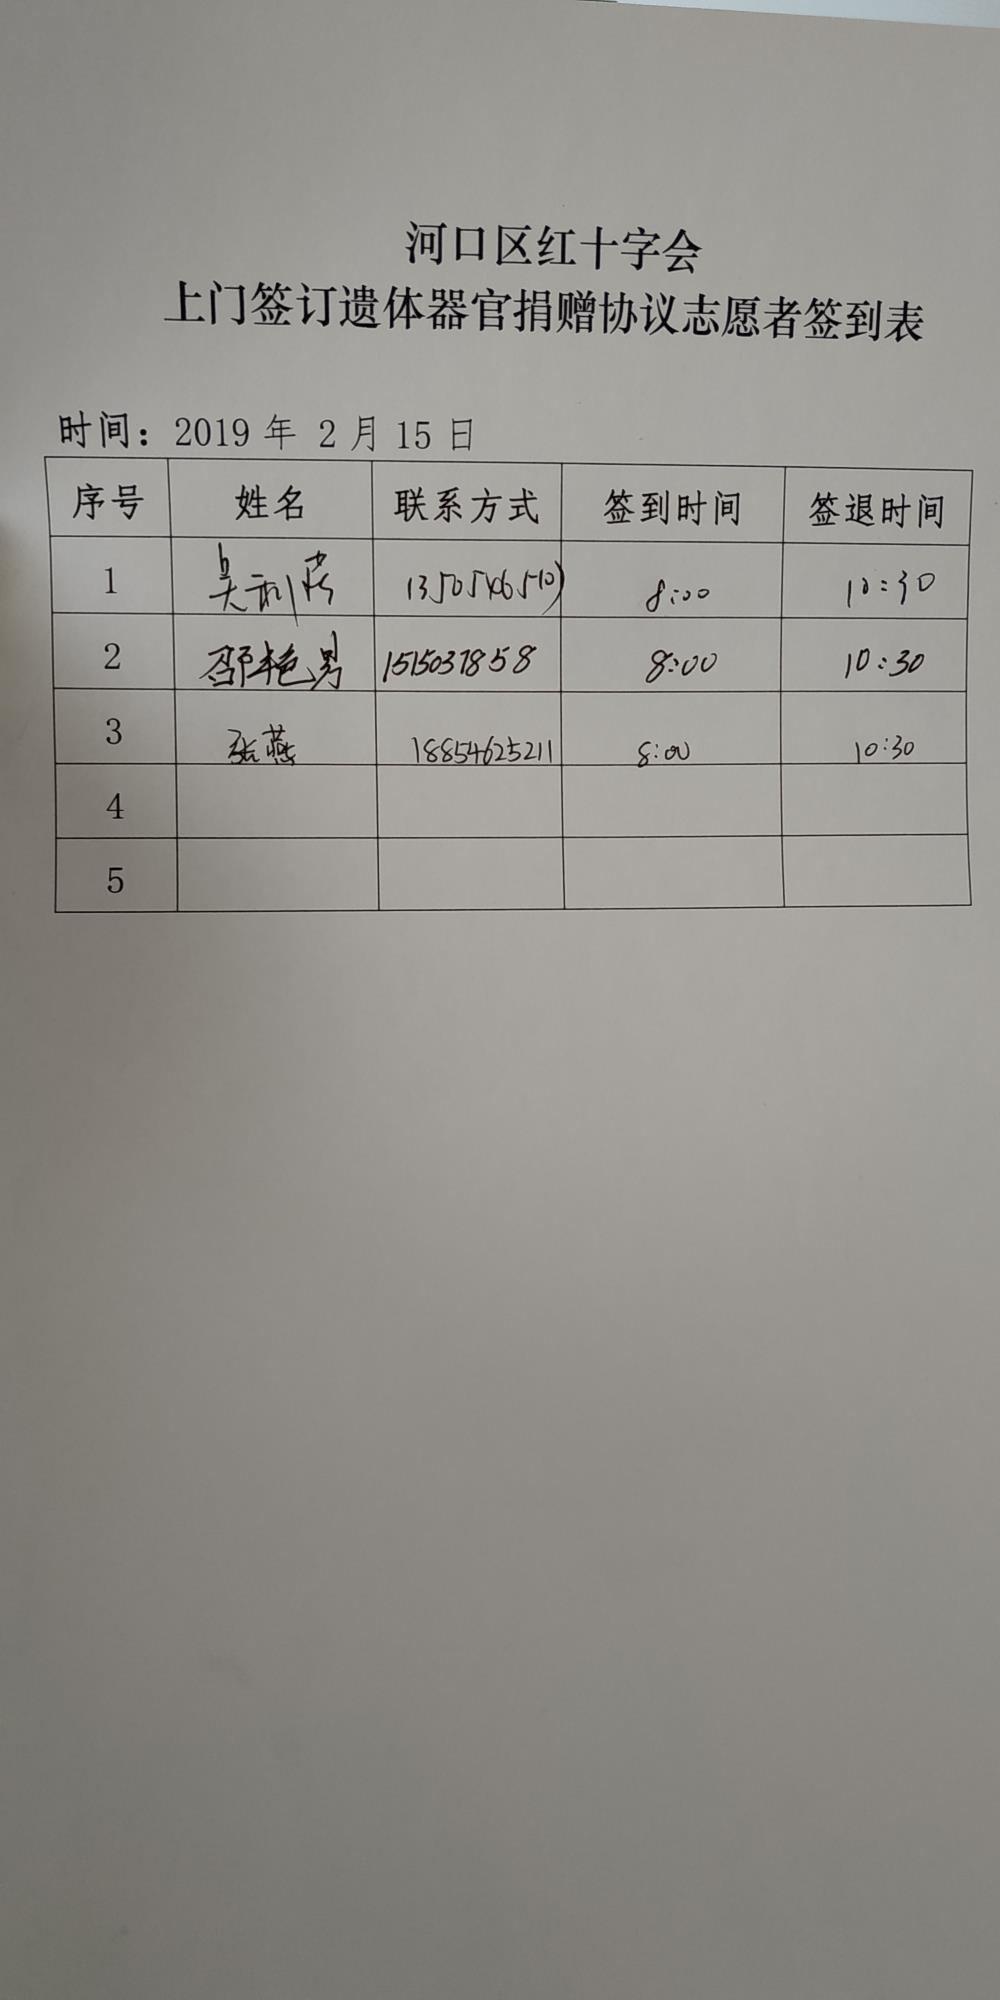 河口区红十字会
上门签订遗体器官捐赠协议志愿者签到表
时间：2019 年 2 月 15 日
序号 姓名 联系方式 签到时间 签退时间
1 8:00 10:30
2 邵艳男 1515037858 8:00 10:30
3 张燕 18854625211 8:00 10:30
4
5